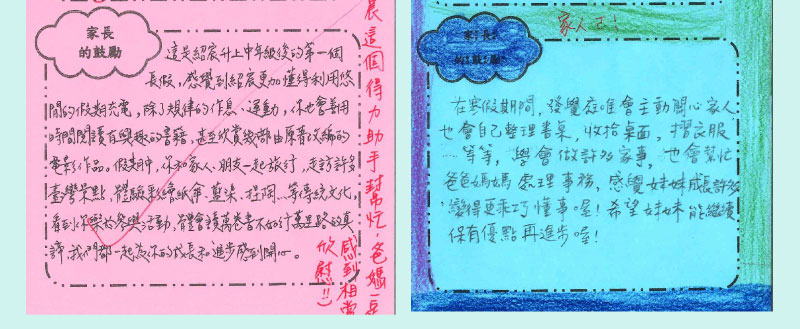 家長
的鼓勵
這是紹宸升上中年級後的第一個
長假，感覺到紹宸更加懂得利用悠
閒的假期充電，除了規律的作息、運動，你也會善用
時間閱讀有興趣的書籍，甚至欣賞幾部由原著改編的
電影作品。假期中，你和家人、朋友一起旅行，走訪許多
臺灣景點，體驗彩繪紙傘、藍染、捏陶、等傳統文化，
看到你樂於參與活動，體會讀萬卷書不如行萬里路的真
諦，我們都一起為你的成長和進步感到開心。
家長
的鼓勵
在寒假期間，發覺庭唯會主動關心家人
也會自己整理書桌，收拾桌面，摺衣服
…等等，學會做許多家事，也會幫忙
爸爸媽媽處理事務，感覺妹妹成長許多
變得更乖巧懂事喔！希望妹妹能繼續
保有優點再進步喔！
這個得力助手幫忙爸媽
感到相當
欣慰!!